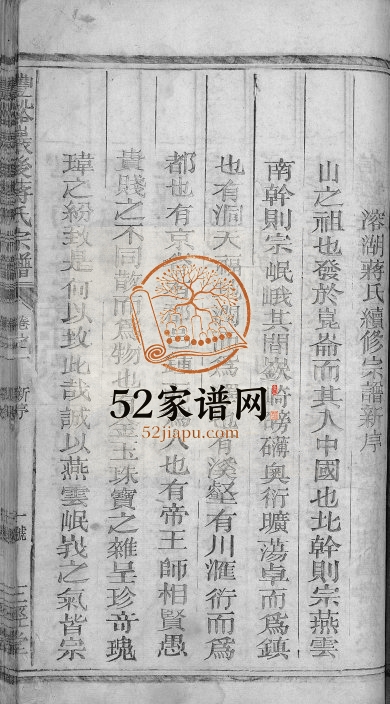 溶湖蔣氏續修宗譜新序
山之祖也發於崑崙而其入中國也北幹則宗燕雲
南幹則宗岷峨其間嶔崎磅礴奥衍曠蕩卓而爲鎮
也有洞天福 有溪壑有川滙衍而爲
都也有京 人也有帝王師相賢愚
貴賤之不同散而爲物也 金玉珠寶之雜呈珍奇瑰
瑋之紛致是何以故此哉誠以燕雲岷峩之氣皆宗
後蔣氏宗譜 卷之一 新序
52家谱网
52jiapu.com